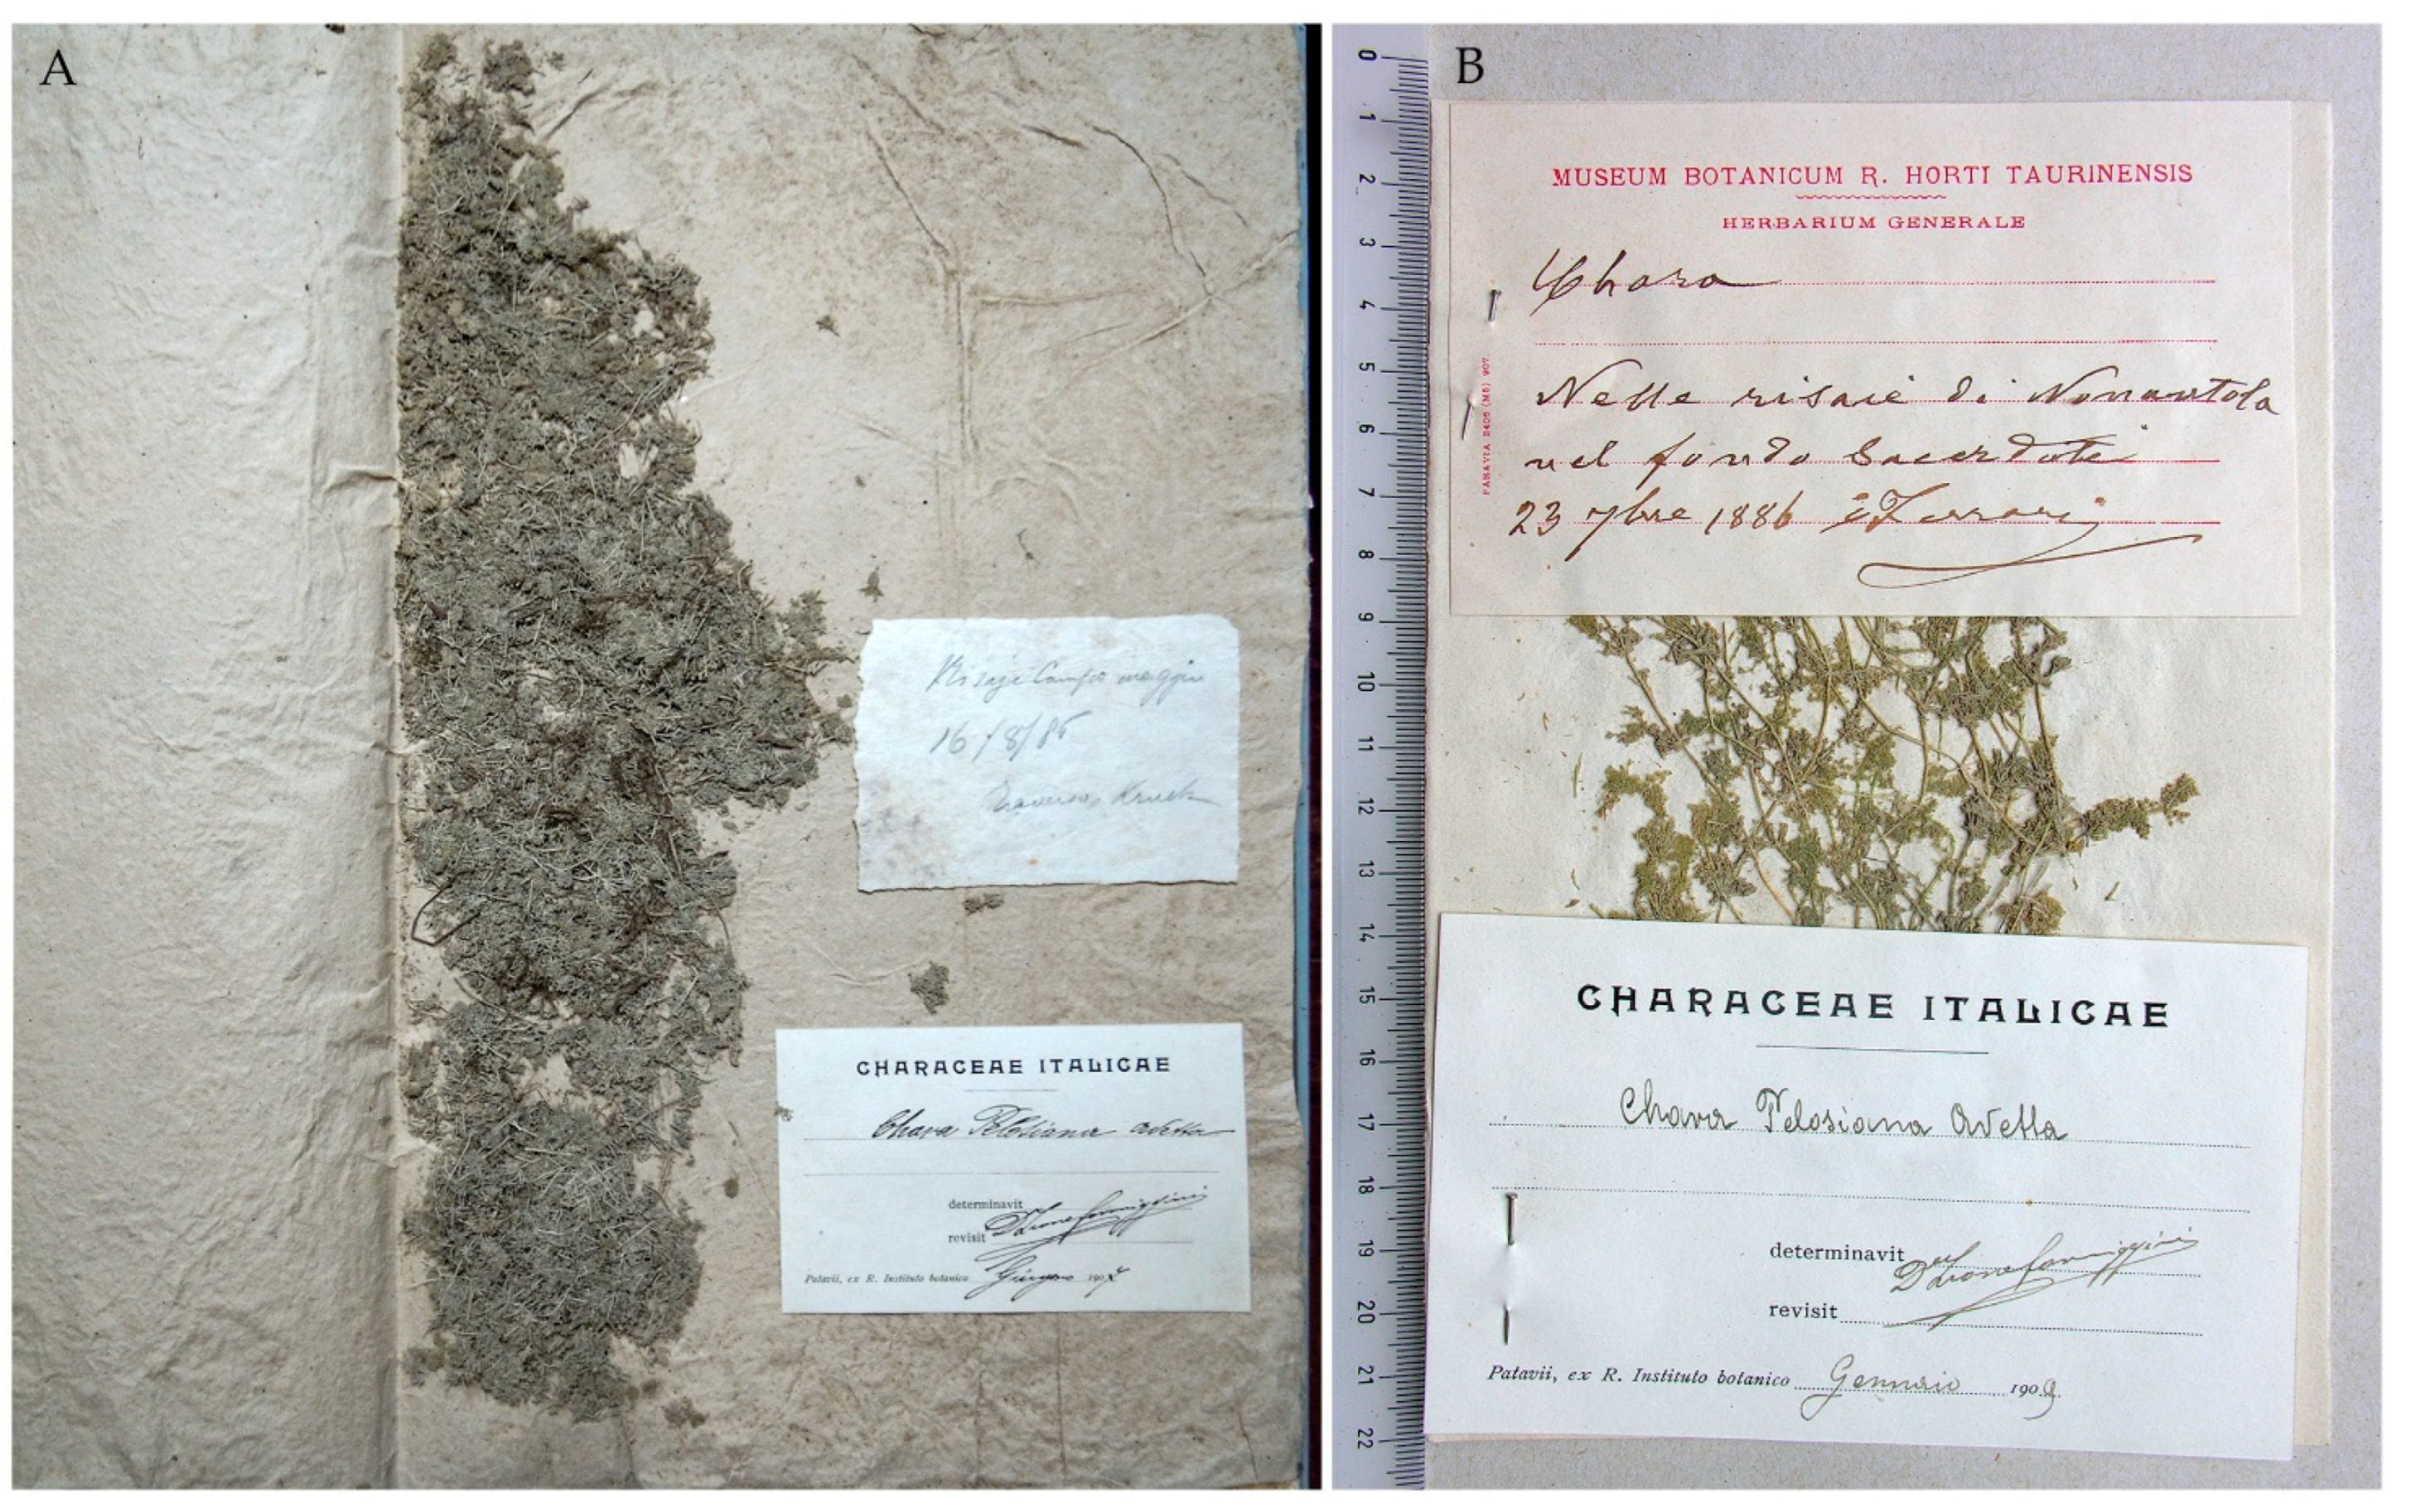 A
Campo maggiore
16/8/86
Traverso, Kruch
CHARACEAE ITALICAE
Chara Pelosiana Avetta
determinavit
revisit
Patavii, ex R. Instituto botanico Giugno 190
B
0
1
2
3
4
5
6
7
8
9
10
11
12
13
14
15
16
17
18
19
20
21
22
MUSEUM BOTANICUM R. HORTI TAURINENSIS
HERBARIUM GENERALE
Chara
Nelle risaie di Nonantola
nel fondo Sacerdoti
23 7bre 1886 Ferrari
PARAVIA 2405 (M5) 907
CHARACEAE ITALICAE
Chara Pelosiana Avetta
determinavit Formiggini
revisit
Patavii, ex R. Instituto botanico Gennaio 1909